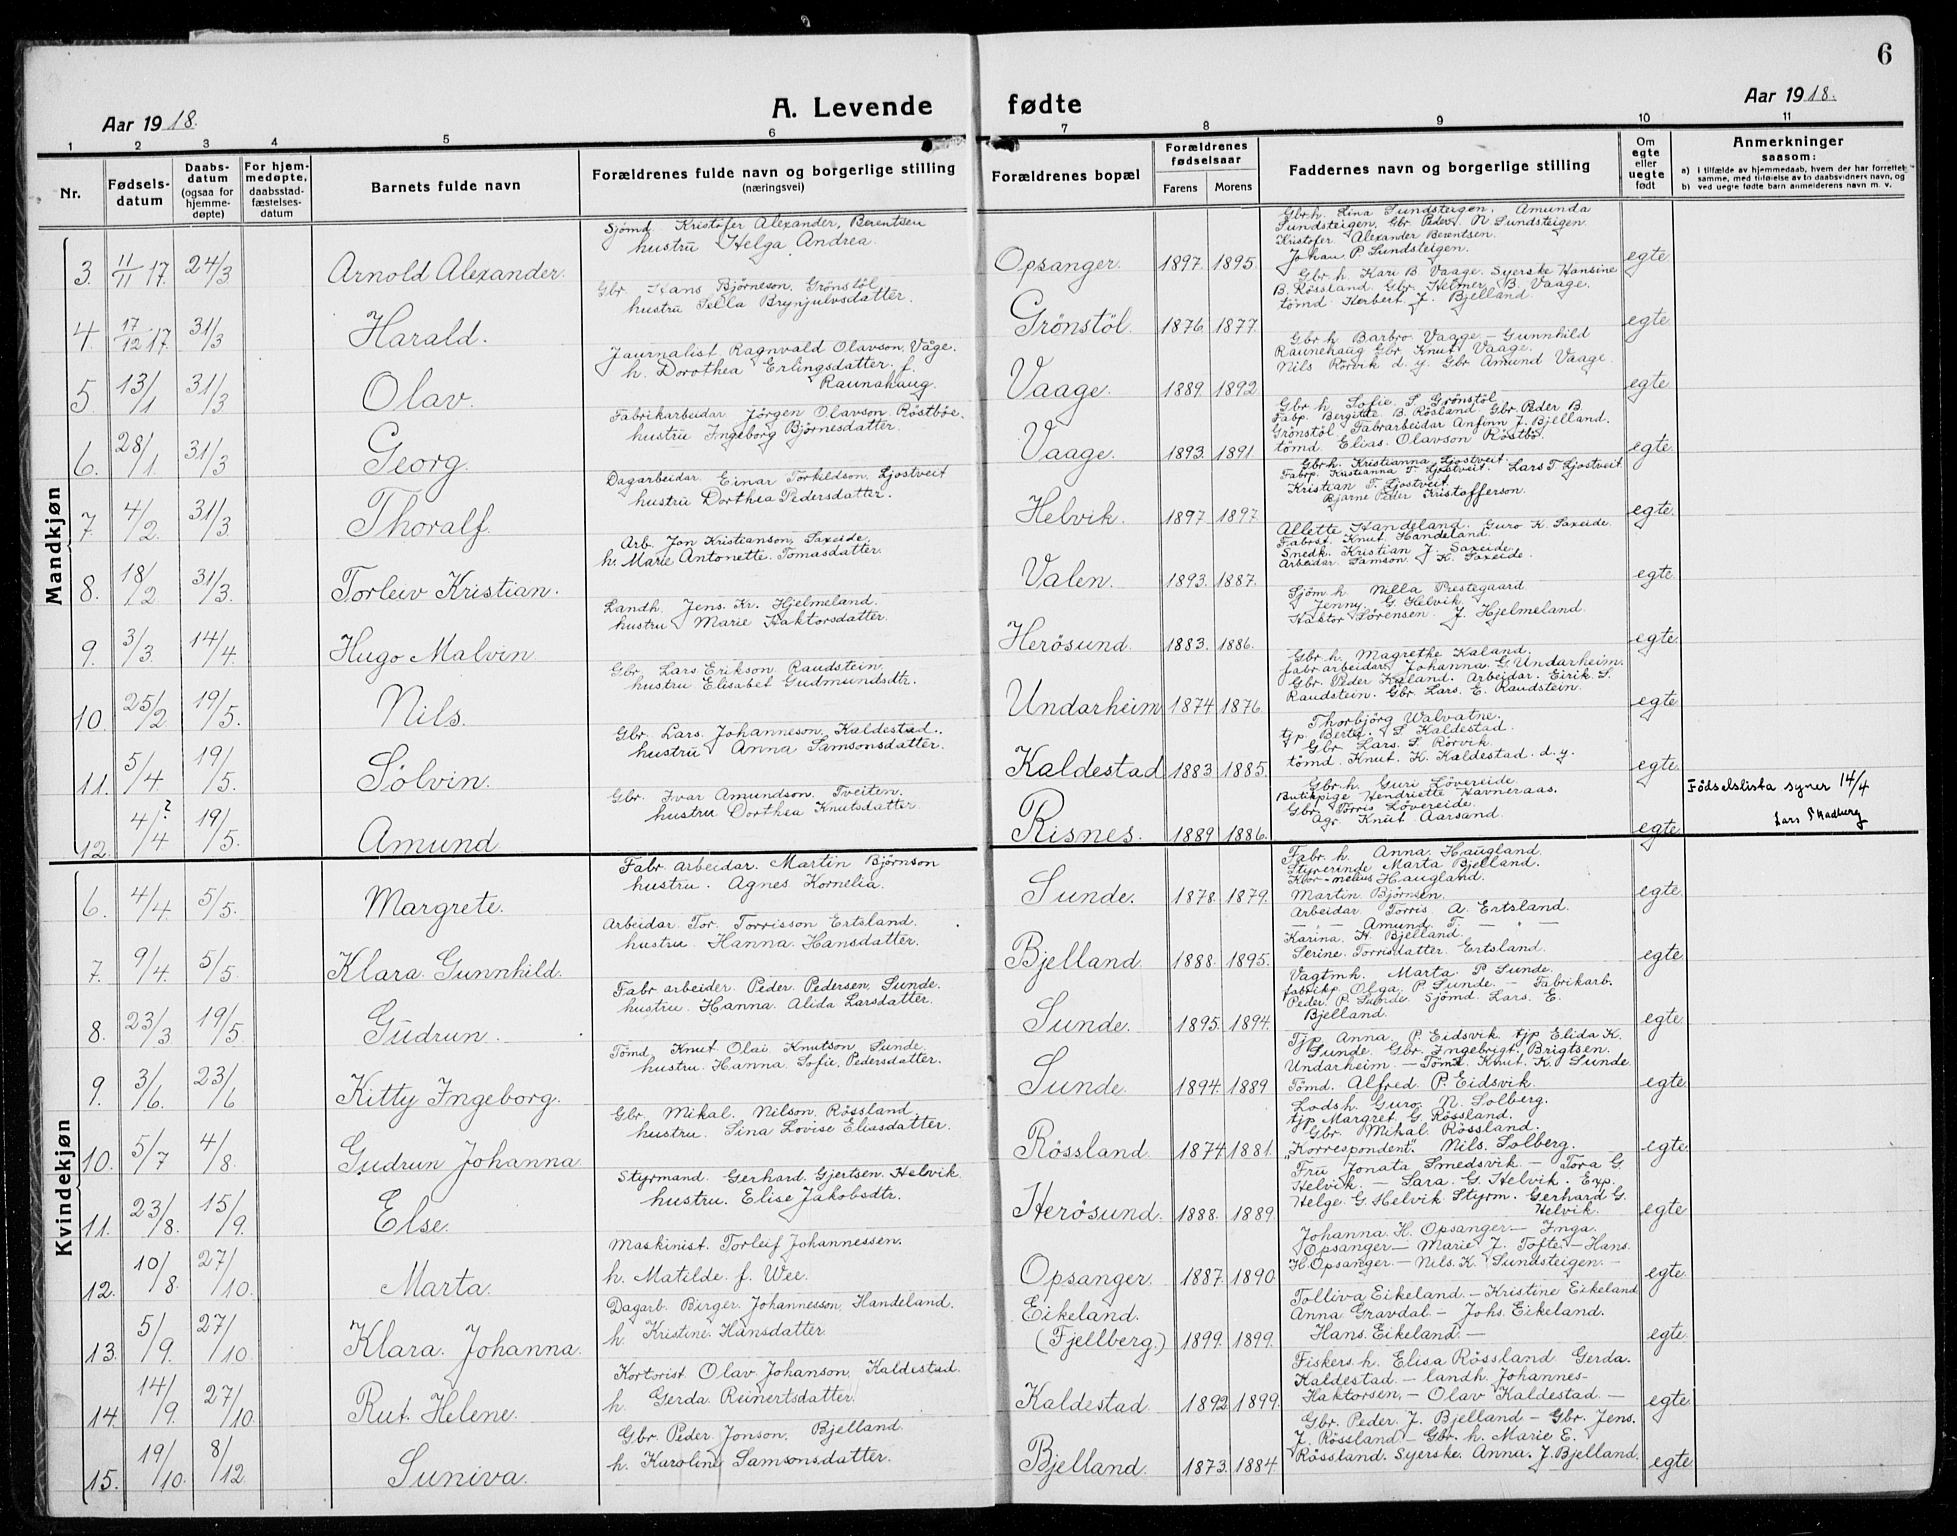 6
Aar 1918.
A. Levende fødte
Aar 1918.
1 2 3 4 5 6 7 8 9 10 11
Nr.
Fødsels-
datum
Daabs-
datum
(ogsaa for
hjemme-
døpte)
For hjem-
medøpte,
daabsstad-
fæstelses-
datum
Barnets fulde navn
Forældrenes fulde navn og borgerlige stilling
(næringsvei)
Forældrenes bopæl
Forældrenes
fødselsaar
Farens Morens
Faddernes navn og borgerlige stilling
Om
egte
eller
uegte
født
Anmerkninger
saasom:
a) i tilfælde av hjemmedaab, hvem der har forrettet
samme, med tilføielse av to daabsvidners navn, og
b) ved uegte fødte barn anmelderens navn m. v.
Mandkjøn
3. 11/11 17. 24/3 Arnold Alexander.
Sjømd. Kristofer Alexander, Berentsen
hustru Helga Andrea.
Opsanger. 1897. 1895.
Gbr.h. Lina Sundsteigen. Amunda
Sundsteigen, Gbr. Peder N. Sundsteigen.
Kristofer Alexander Berentsen.
Johan P. Sundsteigen.
egte
4 17/12 17 31/3 Harald.
Gbr. Hans Bjørneson, Grönstöl
hustru Sella Brynjulvsdatter.
Grönstöl. 1876. 1877.
Gbr h. Kari B Vaage. Syerske Hansine
B. Røssland. Gbr. Helmer B. Vaage.
tömd Herbert J. Bjelland.
egte
5. 13/1 31/3 Olav.
Jaurnalist Ragnvald Olavson, Våge.
h. Dorothea Erlingsdatter. f.
Raunahaug.
Vaage. 1889. 1892.
Gbr h. Barbro Vaage - Gunnhild
Raunehaug Gbr. Knut Vaage.
Nils Rørvik d. y. Gbr. Amund Vaage.
egte
6. 28/1. 31/3 Georg.
Fabrikarbeidar Jörgen Olavson Røstbøe.
hustru Ingeborg Bjørnesdatter.
Vaage. 1893. 1891
Gbr h. Sofie S Grönstöl
Fabp. Bergitte B. Røsland Gbr. Peder B
Grönstöl Fabrarbeidar Anfinn J. Bjelland.
tömd. Elias Olavson Röstbö.
egte.
7 4/2. 31/3 Thoralf.
Dagarbeidar. Einar Torkildson, Ljostveit
hustru Dorthea Pedersdatter.
Helvik. 1897. 1897.
Gbr h. Kristianna Ljostveit.
Fabrp. Kristianna T. Ljostveit. Lars T Ljostveit
Kristian T. Ljostveit.
Bjarne Peder Kristofferson.
egte.
8. 18/2 31/3. Torleiv Kristian.
Arb. Jon Kristianson, Saxeide.
h. Marie Antonette. Tomasdatter.
Valen. 1893. 1887.
Allette Handeland. Guro K. Saxeide.
Fabrst. Knut Handeland.
Snedk. Kristian J. Saxeide.
Arbeidar Samson K. Saxeide.
egte
9. 3/3. 14/4. Hugo Malvin
Landh. Jens. Kr. Hjelmeland.
hustru Marie Haktorsdatter.
Herösund. 1883. 1886.
Sjøm h. Nilla Prestegaard
Jenny G. Helvik.
Haktor Sørensen J. Hjelmeland.
egte.
10. 25/2 19/5. Nils.
Gbr. Lars Erikson. Raudstein.
hustru Elisabet Gudmundsdtr.
Undarheim 1874. 1876.
Gbr h. Magrethe Kaland.
fabr arbeidar. Johanna G. Undarheim.
Gbr. Peder Kaland. Arbeidar. Eirik S.
Raudstein. Gbr. Lars. E. Raudstein.
egte
11. 5/4 19/5. Sölvin.
Gbr. Lars. Johanneson, Kaldestad.
hustru Anna Samsonsdatter.
Kaldestad 1883. 1885.
Thorbjörg Walvatne.
tjp. Berte. S Kaldestad.
Gbr. Lars. S. Rörvik.
tömd. Knut. K. Kaldestad. d. y.
egte.
12. 4/4 ? 19/5. Amund
Gbr. Ivar Amundson. Tveiten.
hustru Dorthea Knutsdatter.
Risnes. 1889. 1886.
Gbr.h. Guri Lövereide.
Butikpige Hendriette Havneraas.
Gbr. Torris Lövereide.
Agr. Knut Aarsand.
egte
Födselslista syner 14/4
Kvindekjøn
6. 4/4. 5/5. Margrete.
Fabr. arbeidar. Martin Bjørnson
hustru. Agnes Kornelia.
Sunde. 1878. 1879.
Fabr. h. Anna Haugland.
Styrerinde Marta Bjelland.
Kor-nelius Haugland.
Martin Bjørnsen.
egte
7. 9/4. 5/5. Klara. Gunnhild.
Arbeidar. Tor. Torrisson Ertsland.
hustru. Hanna. Hansdatter.
Bjelland. 1888. 1895.
Arbeidar Torris A. Ertsland.
- " - Amund T. - " -
Karina. H. Bjelland.
Serine. Torrisdatter Ertsland.
egte.
8. 23/3 19/5 Gudrun.
Fabr arbeider. Peder. Pedersen, Sunde.
hustru. Hanna. Alida Larsdatter.
Sunde. 1895. 1894.
Vagtmh. Marta. P Sunde.
fabrikp. Olga. P. Sunde - Fabrikarb.
Peder. P. Sunde. Sjömd. Lars. E.
Bjelland.
egte.
9. 3/6. 23/6 Kitty Ingeborg.
Tömd Knut Olai Knutson Sunde.
hustru. Hanna Sofie Pedersdatter.
Sunde. 1894. 1889
Tjp. Anna P. Eidsvik. tjp Elida K.
Sunde. Gbr. Ingebrigt. Brigtsen.
Undarheim. - Tömd. Knut. K. Sunde
Tömd. Alfred P. Eidsvik.
egte.
10. 5/7 4/8. Gudrun Johanna
Gbr. Mikal. Nilson, Røssland.
hustru. Sina Lovise Eliasdatter.
Røssland 1874. 1881.
Lodsh. Guro. N. Solberg.
tjp Margret G. Røssland.
Gbr. Mikal Røssland.
Korrespondent. Nils. Solberg.
egte
11. 23/8. 15/9. Else.
Styrmand. Gerhard. Gjertsen, Helvik
hustru. Elise Jakobsdtr.
Herösund. 1888. 1889.
Fru Jonata Smedsvik - Tora G.
Helvik. - Sara. G. Helvik. Exp.
Helge. G. Helvik Styrm. Gerhard G.
Helvik.
egte
12. 10/8. 27/10. Marta.
Maskinist. Torleif Johannessen.
h. Matilde. f. Wee.
Opsanger. 1887. 1890.
Johanna. H. Opsanger - Inga.
Opsanger - Marie J. Tofte - Hans.
H. Opsanger. - Nils. K. Sundsteigen. -
egte.
13. 5/9. 27/10. Klara. Johanna.
Dagarb. Birger. Johannesson Handeland.
h. Kristine. Hansdatter.
Eikeland.
(Fjellberg.) 1899. 1899.
Tolliva Eikeland. - Kristine Eikeland
Anna Gravdal - Johs. Eikeland.
Hans. Eikeland. -
egte.
14. 14/9. 27/10. Rut. Helene.
Kortorist Olav Johanson, Kaldestad.
h. Gerda Reinertsdatter.
Kaldestad. 1892. 1899.
Fiskers. h. Elisa Røssland Gerda.
Kaldestad. - landh. Johannes-
Haktorsen. - Olav Kaldestad. -
egte.
15. 19/10. 8/12. Suniva.
Gbr. Peder. Jonson, Bjelland.
h. Karoline Samsonsdatter.
Bjelland. 1873. 1884.
Gbr. Peder J. Bjelland - Gbr. Jens.
J. Røssland - Gbr. h. Marie E.
Røssland. Syerske. Anna. J. Bjelland.
egte.